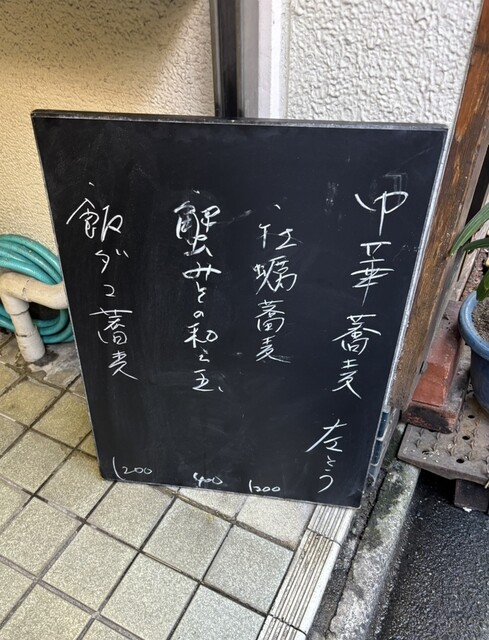 中華蕎麦 左とう
、牡蠣蕎麦 1200
、蟹みその和え玉、 400
、飯ダコ蕎麦 1200